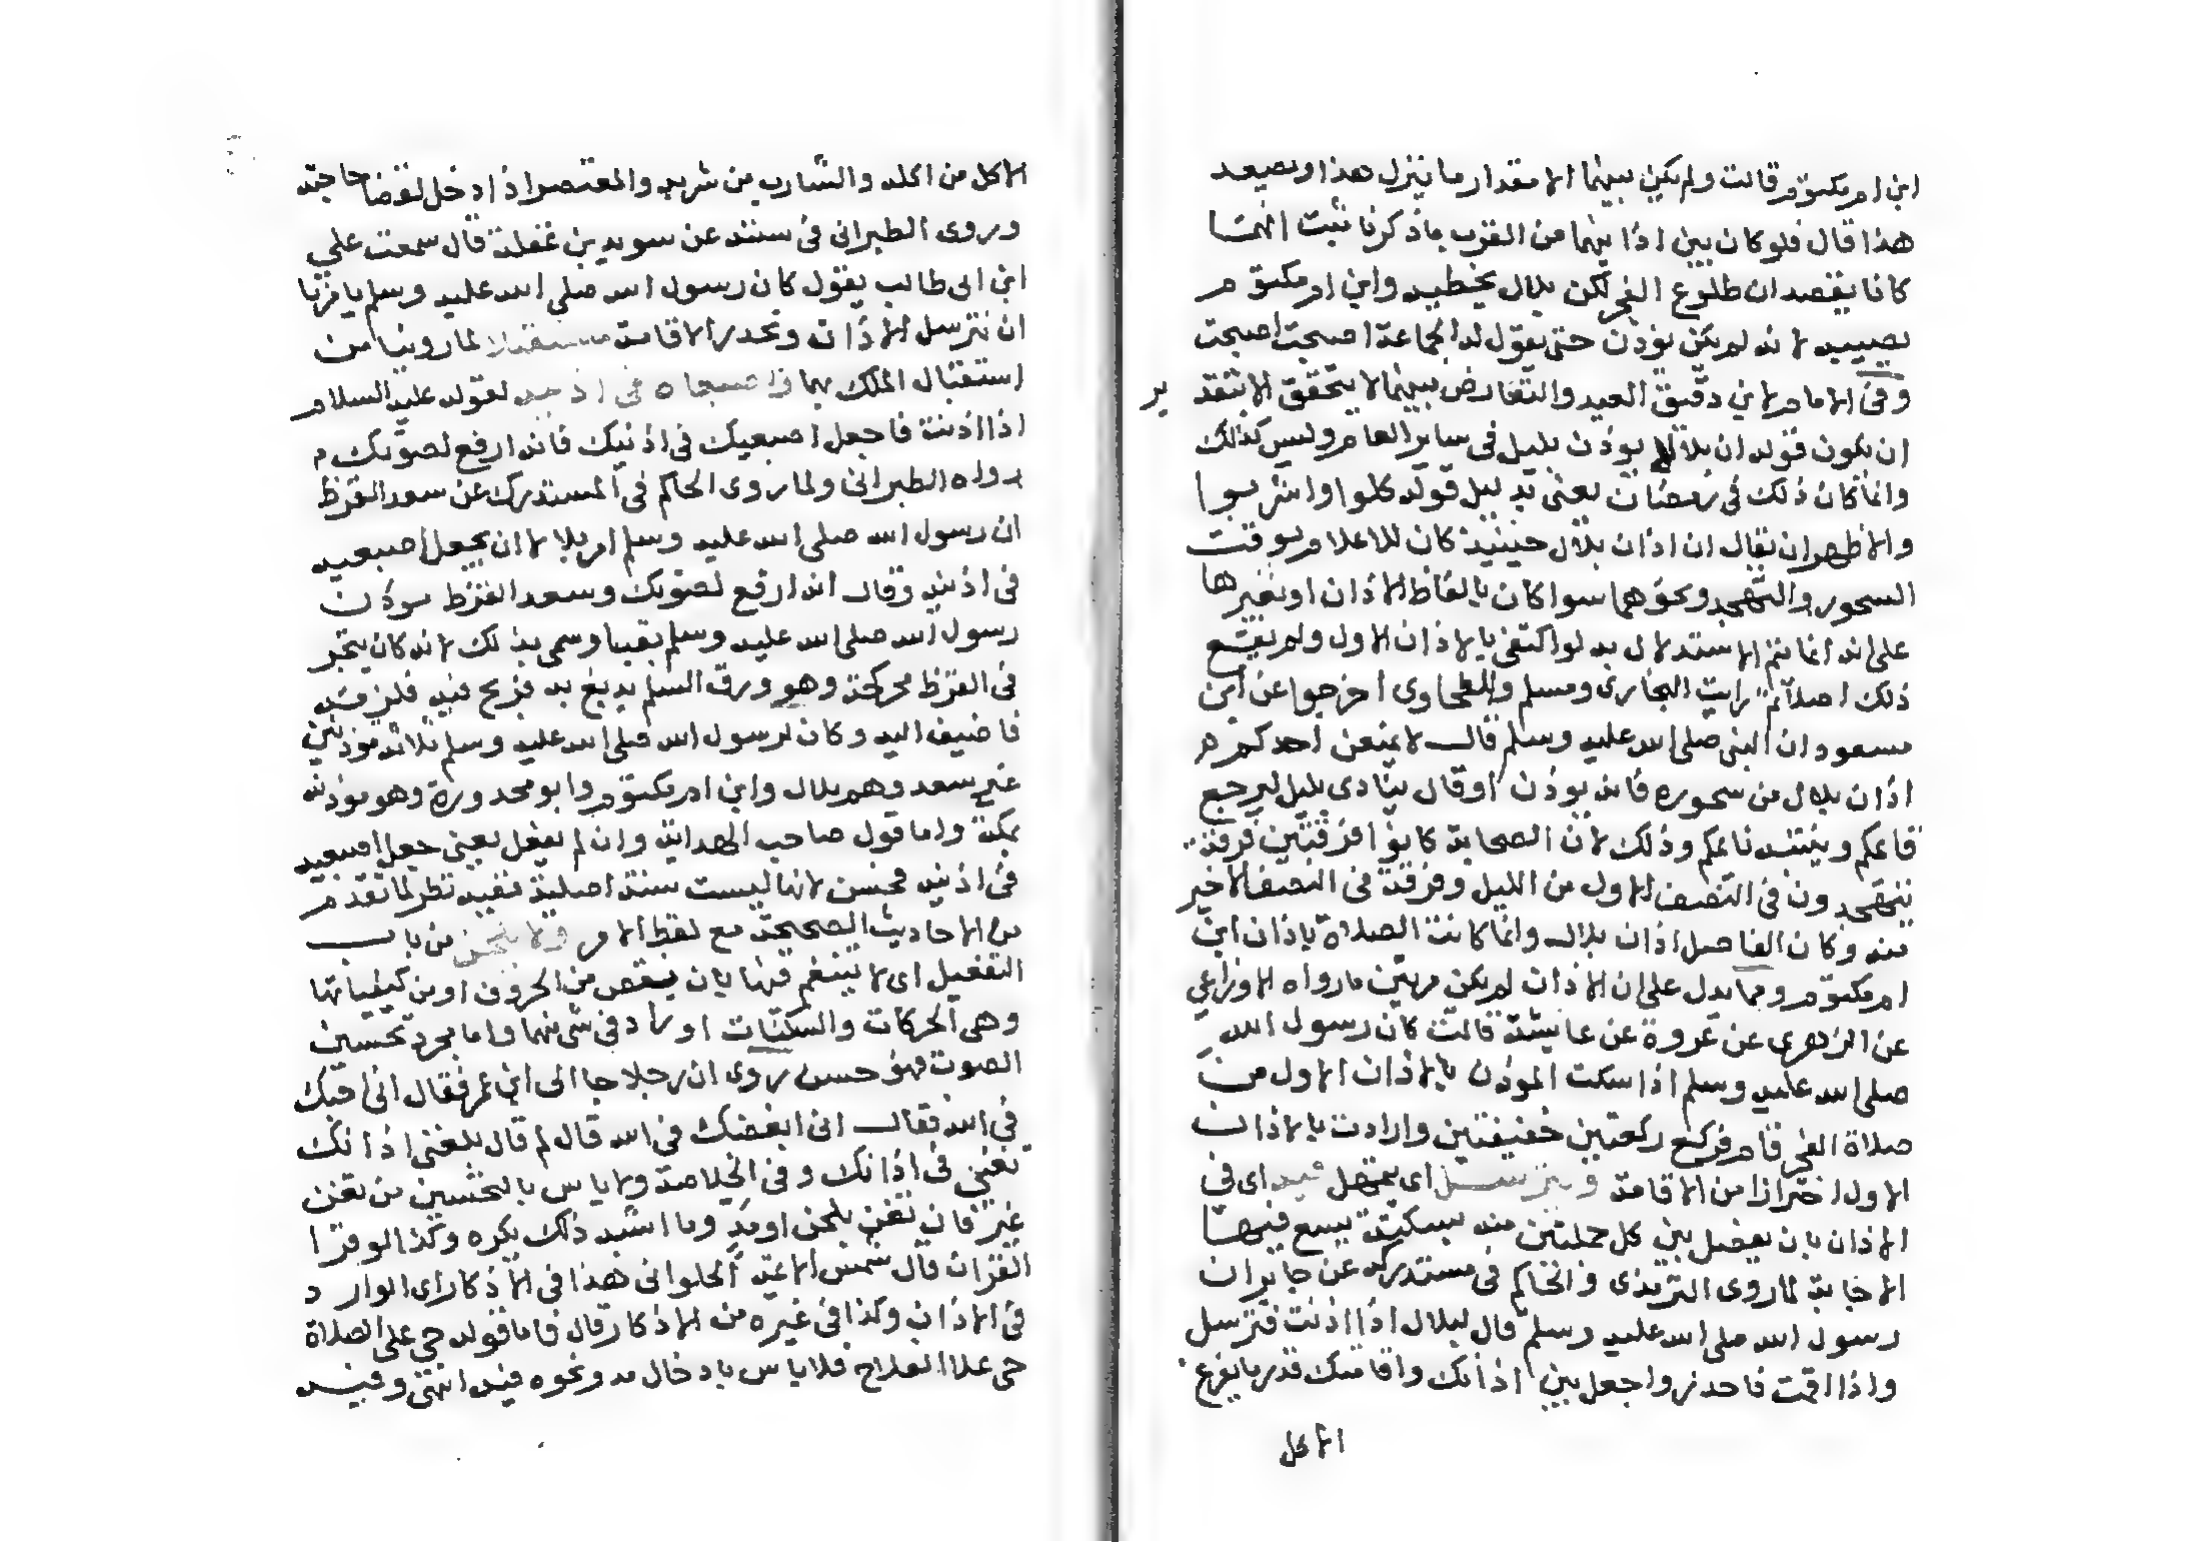 ابن ام مكتوم قالت ولم يكن بينهما الا مقدار ما ينزل هذا ويصعد
هذا قال فلو كان بين اذانيهما من القرب ما ذكرنا ثبت انهما
كانا يقصدان طلوع الفجر لكن بلال يخطيه وابن ام مكتوم
يصيبه لانه لم يكن يوذن حتى يقول له الجماعة اصبحت اصبحت
وفى الامام لابن دقيق العيد والتعارض بينهما لا يتحقق الا بتقدير
ان يكون قوله ان بلالا يوذن بليل فى ساير العام وليس كذلك
وانما كان ذلك فى رمضان يعنى بدليل قوله كلوا واشربوا
والاظهر ان يقال ان اذان بلال حينيذ كان للاعلام بوقت
السحور والتهجد ونحوهما سوا كان بالفاظ الاذان او بغيرها
على انه انما يتم الاستدلال به لو اكتفى بالاذان الاول ولم يقع
ذلك اصلا ثم رايت البخارى ومسلم والطحاوى اخرجوا عن ابن
مسعود ان النبى صلى الله عليه وسلم قال لا يمنعن احدكم
اذان بلال من سحوره فانه يوذن او قال ينادى بليل ليرجع
قايمكم وينتبه نايمكم وذلك لان الصحابة كانوا فرقتين فرقة
يتهجدون فى النصف الاول من الليل وفرقة فى النصف الاخير
منه وكان الفاصل اذان بلال وانما كانت الصلاة باذان ابن
ام مكتوم ومما يدل على ان الاذان لم يكن مرتين ما رواه الاوزاعي
عن الزهرى عن عروة عن عايشة قالت كان رسول الله
صلى الله عليه وسلم اذا سكت الموذن بالاذان الاول من
صلاة الفجر قام فركع ركعتين خفيفتين وارادت بالاذان
الاول احترازا من الاقامة ويترسل اى يتمهل فيه اى فى
الاذان بان يفصل بين كل جملتين منه بسكتة يسع فيها
الاجابة لما روى الترمذى والحاكم فى مستدركه عن جابر ان
رسول الله صلى الله عليه وسلم قال لبلال اذا اذنت فترسل
واذا اقمت فاحدر واجعل بين اذانك واقامتك قدر ما يفرغ
الاكل
الاكل من اكله والشارب من شربه والمعتصر اذا دخل لقضا حاجته
وروى الطبرانى فى سننه عن سويد بن غفلة قال سمعت علي
ابن ابى طالب يقول كان رسول الله صلى الله عليه وسلم يامرنا
ان نترسل الاذان ونحدر الاقامة مستقبلا لما روينا من
استقبال الملك بهما واصبعاه فى اذنيه لقوله عليه السلام
اذا اذنت فاجعل اصبعيك فى اذنيك فانه ارفع لصوتك
رواه الطبرانى ولما روى الحاكم فى المستدرك عن سعد القرظ
ان رسول الله صلى الله عليه وسلم امر بلالا ان يجعل اصبعيه
فى اذنيه وقال انه ارفع لصوتك وسعد القرظ موذن
رسول الله صلى الله عليه وسلم بقبا وسمى بذلك لانه كان يتجر
فى القرظ محركة وهو ورق السلم يدبغ به فربح فيه فلزمه
فاضيف اليه وكان لرسول الله صلى الله عليه وسلم ثلاثة موذنين
غير سعد وهم بلال وابن ام مكتوم وابو محدورة وهو موذنه
بمكة واما قول صاحب الهداية وان لم يفعل يعنى جعل اصبعيه
فى اذنيه فحسن لانها ليست سنة اصلية ففيه نظر لما تقدم
من الاحاديث الصحيحة مع لفظ الامر ولا يلحن من باب
التفعيل اى لا يتنغم فيها بان ينقص من الحروف او من كيفياتها
وهى الحركات والسكنات او زاد فى شى منها واما مجرد تحسين
الصوت فهو حسن روى ان رجلا جا الى ابن عمر فقال انى احبك
فى الله فقال انى ابغضك فى الله قال لم قال بلغنى اذانك
تغني فى اذانك وفى الخلاصة ولا باس بالتحسين من تغن
غير فان تغن بلحن او مد وما اشبه ذلك يكره وكذا لو قرا
القران قال شمس الايمة الحلوانى هذا فى الاذكار اى الوارد
فى الاذان وكذا فى غيره من الاذكار قال فاما قوله حى على الصلاة
حى علا الفلاح فلا باس بادخال مد ونحوه فيه انتهى وفيه